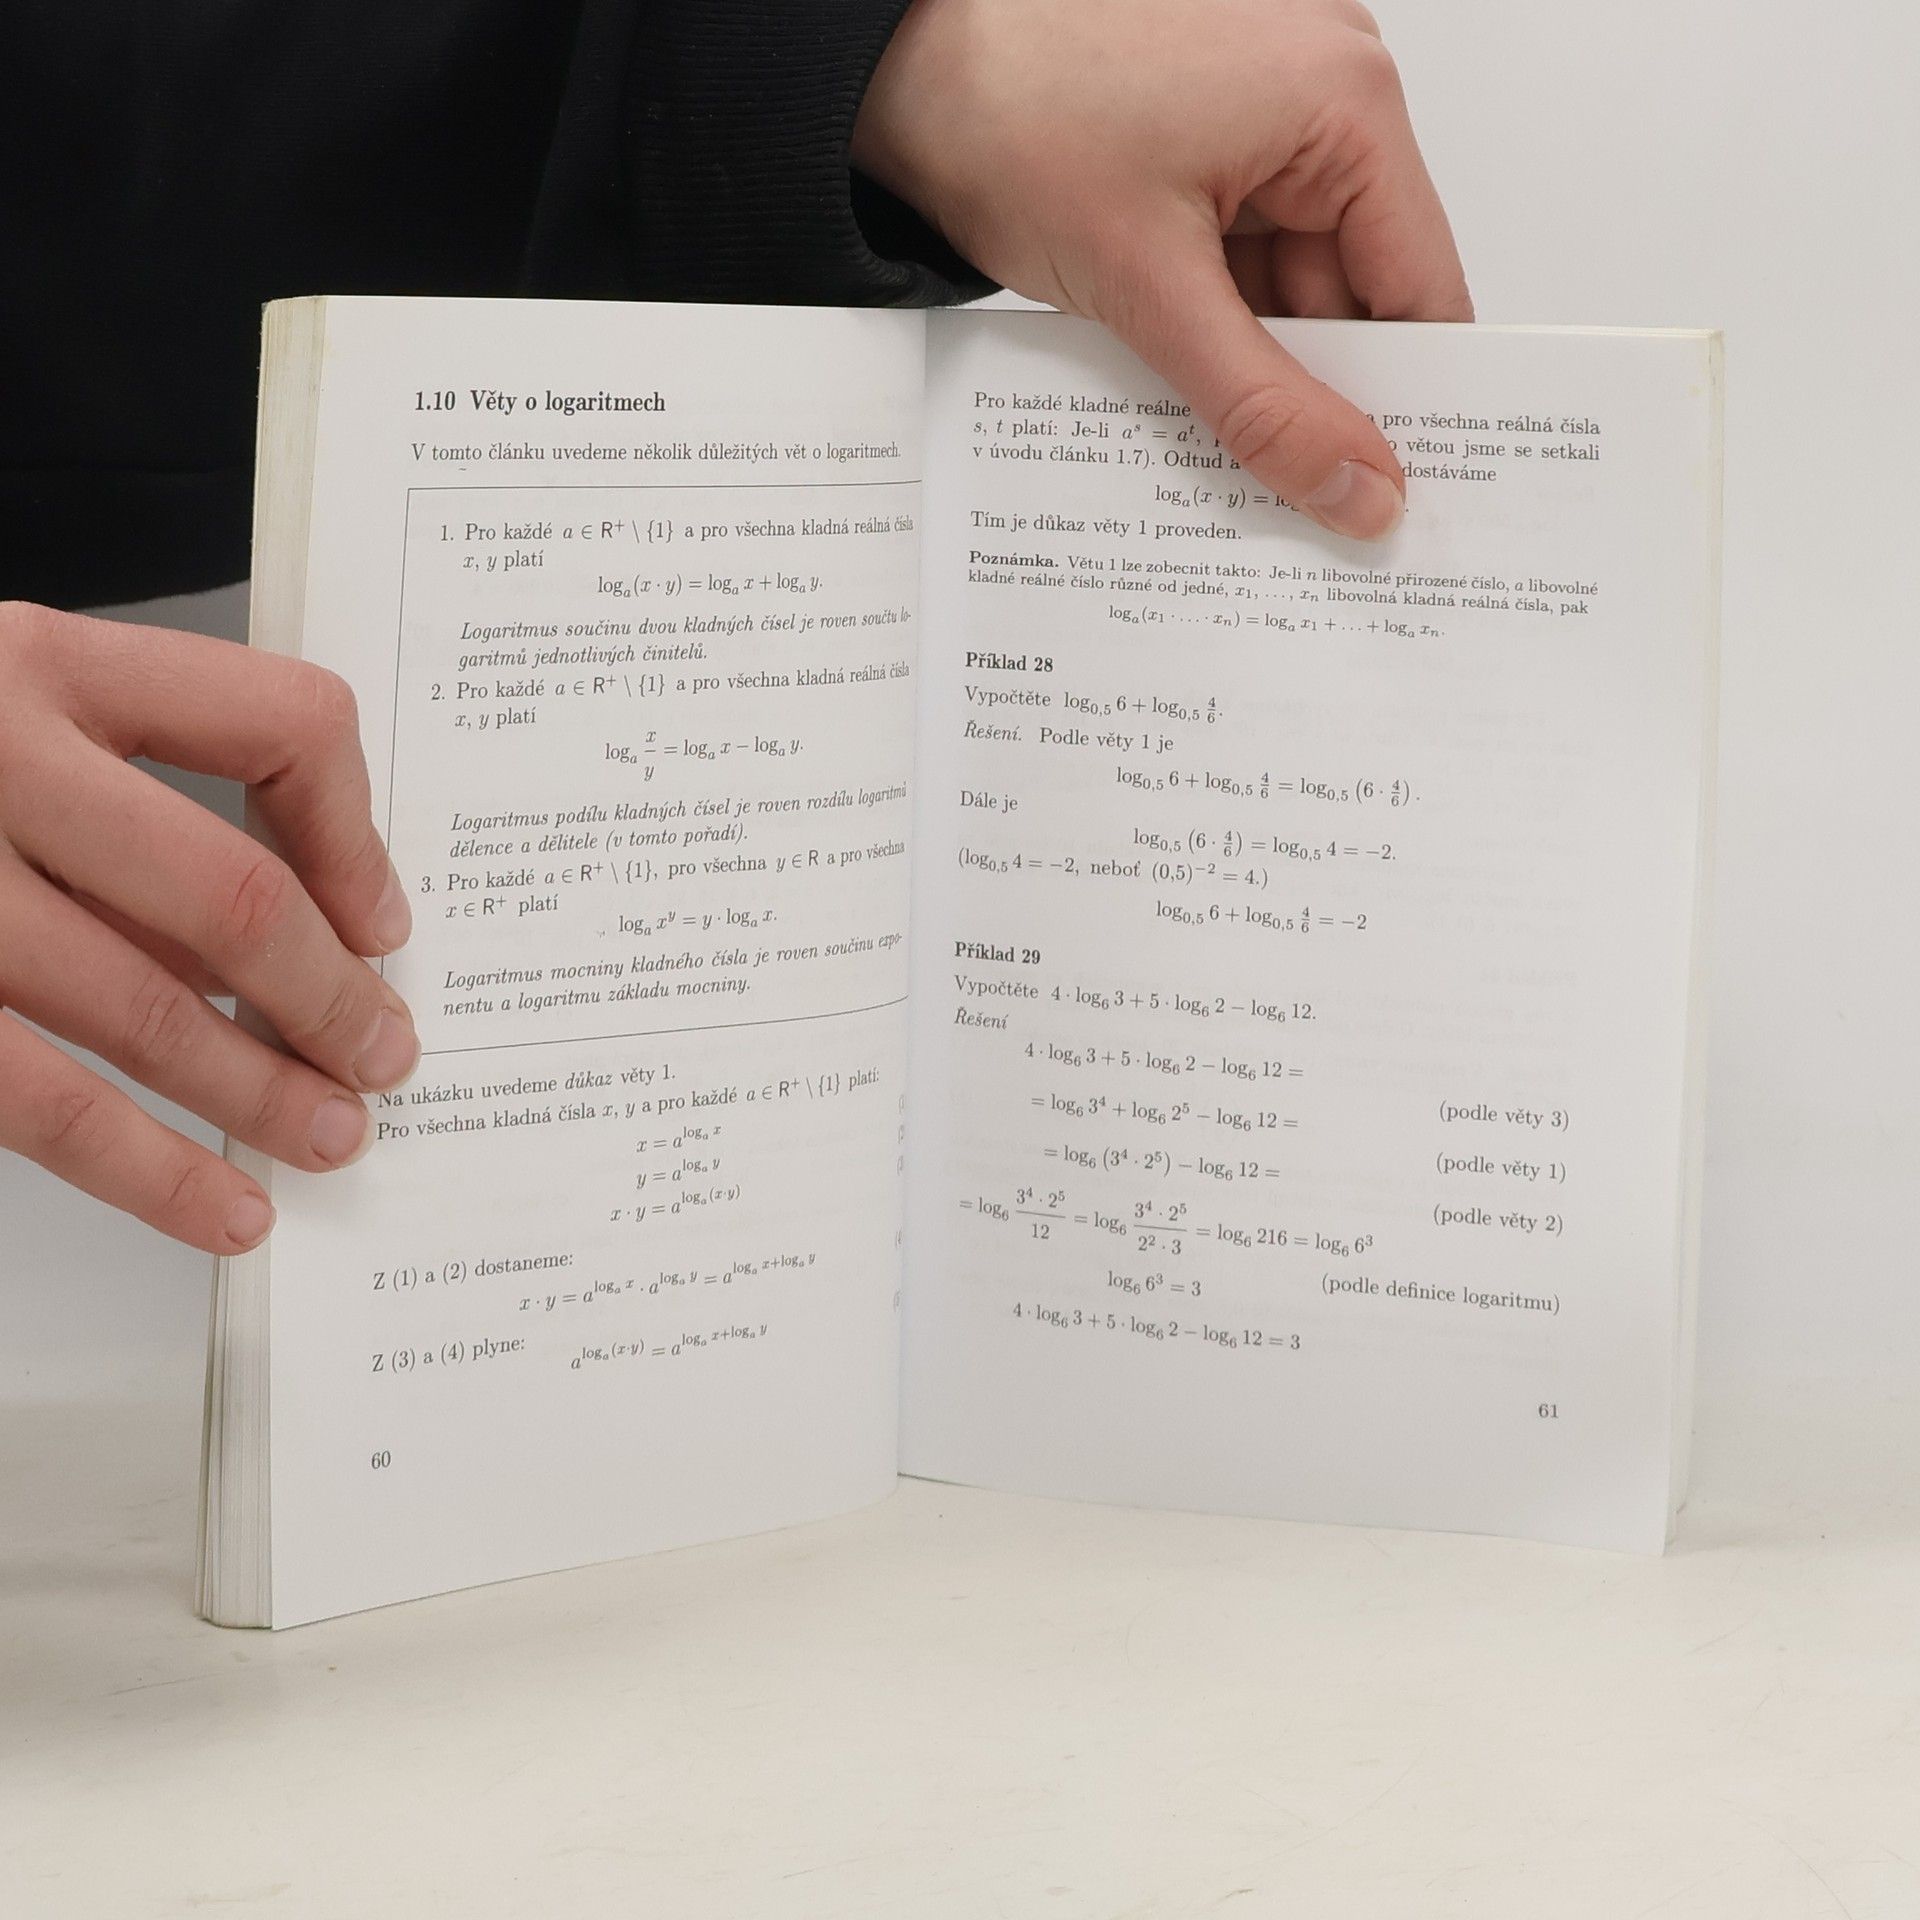 1.10 Věty o logaritmech
V tomto článku uvedeme několik důležitých vět o logaritmech.
1. Pro každé a ∈ R⁺ \ {1} a pro všechna kladná reálná čísla
x, y platí
logₐ(x · y) = logₐ x + logₐ y.
Logaritmus součinu dvou kladných čísel je roven součtu lo-
garitmů jednotlivých činitelů.
2. Pro každé a ∈ R⁺ \ {1} a pro všechna kladná reálná čísla
x, y platí
logₐ x/y = logₐ x − logₐ y.
Logaritmus podílu kladných čísel je roven rozdílu logaritmů
dělence a dělitele (v tomto pořadí).
3. Pro každé a ∈ R⁺ \ {1}, pro všechna y ∈ R a pro všechna
x ∈ R⁺ platí
logₐ x^y = y · logₐ x.
Logaritmus mocniny kladného čísla je roven součinu expo-
nentu a logaritmu základu mocniny.
Na ukázku uvedeme důkaz věty 1.
Pro všechna kladná čísla x, y a pro každé a ∈ R⁺ \ {1} platí:
x = a^(logₐ x)
y = a^(logₐ y)
x · y = a^(logₐ(x·y))
Z (1) a (2) dostaneme:
x · y = a^(logₐ x) · a^(logₐ y) = a^(logₐ x+logₐ y)
Z (3) a (4) plyne:
a^(logₐ(x·y)) = a^(logₐ x+logₐ y)
60
Pro každé kladné reálné pro všechna reálná čísla
s, t platí: Je-li a^s = a^t, větou jsme se setkali
v úvodu článku 1.7). Odtud dostáváme
logₐ(x · y) =
Tím je důkaz věty 1 proveden.
Poznámka. Větu 1 lze zobecnit takto: Je-li n libovolné přirozené číslo, a libovolné
kladné reálné číslo různé od jedné, x₁, ..., xₙ libovolná kladná reálná čísla, pak
logₐ(x₁ · ... · xₙ) = logₐ x₁ + ... + logₐ xₙ.
Příklad 28
Vypočtěte log₀,₅ 6 + log₀,₅ 4/6.
Řešení. Podle věty 1 je
log₀,₅ 6 + log₀,₅ 4/6 = log₀,₅ (6 · 4/6).
Dále je
log₀,₅ (6 · 4/6) = log₀,₅ 4 = −2.
(log₀,₅ 4 = −2, neboť (0,5)⁻² = 4.)
log₀,₅ 6 + log₀,₅ 4/6 = −2
Příklad 29
Vypočtěte 4 · log₆ 3 + 5 · log₆ 2 − log₆ 12.
Řešení
4 · log₆ 3 + 5 · log₆ 2 − log₆ 12 =
= log₆ 3⁴ + log₆ 2⁵ − log₆ 12 = (podle věty 3)
= log₆ (3⁴ · 2⁵) − log₆ 12 = (podle věty 1)
= log₆ (3⁴ · 2⁵)/12 = log₆ (3⁴ · 2⁵)/(2² · 3) = log₆ 216 = log₆ 6³ (podle věty 2)
log₆ 6³ = 3 (podle definice logaritmu)
4 · log₆ 3 + 5 · log₆ 2 − log₆ 12 = 3
61